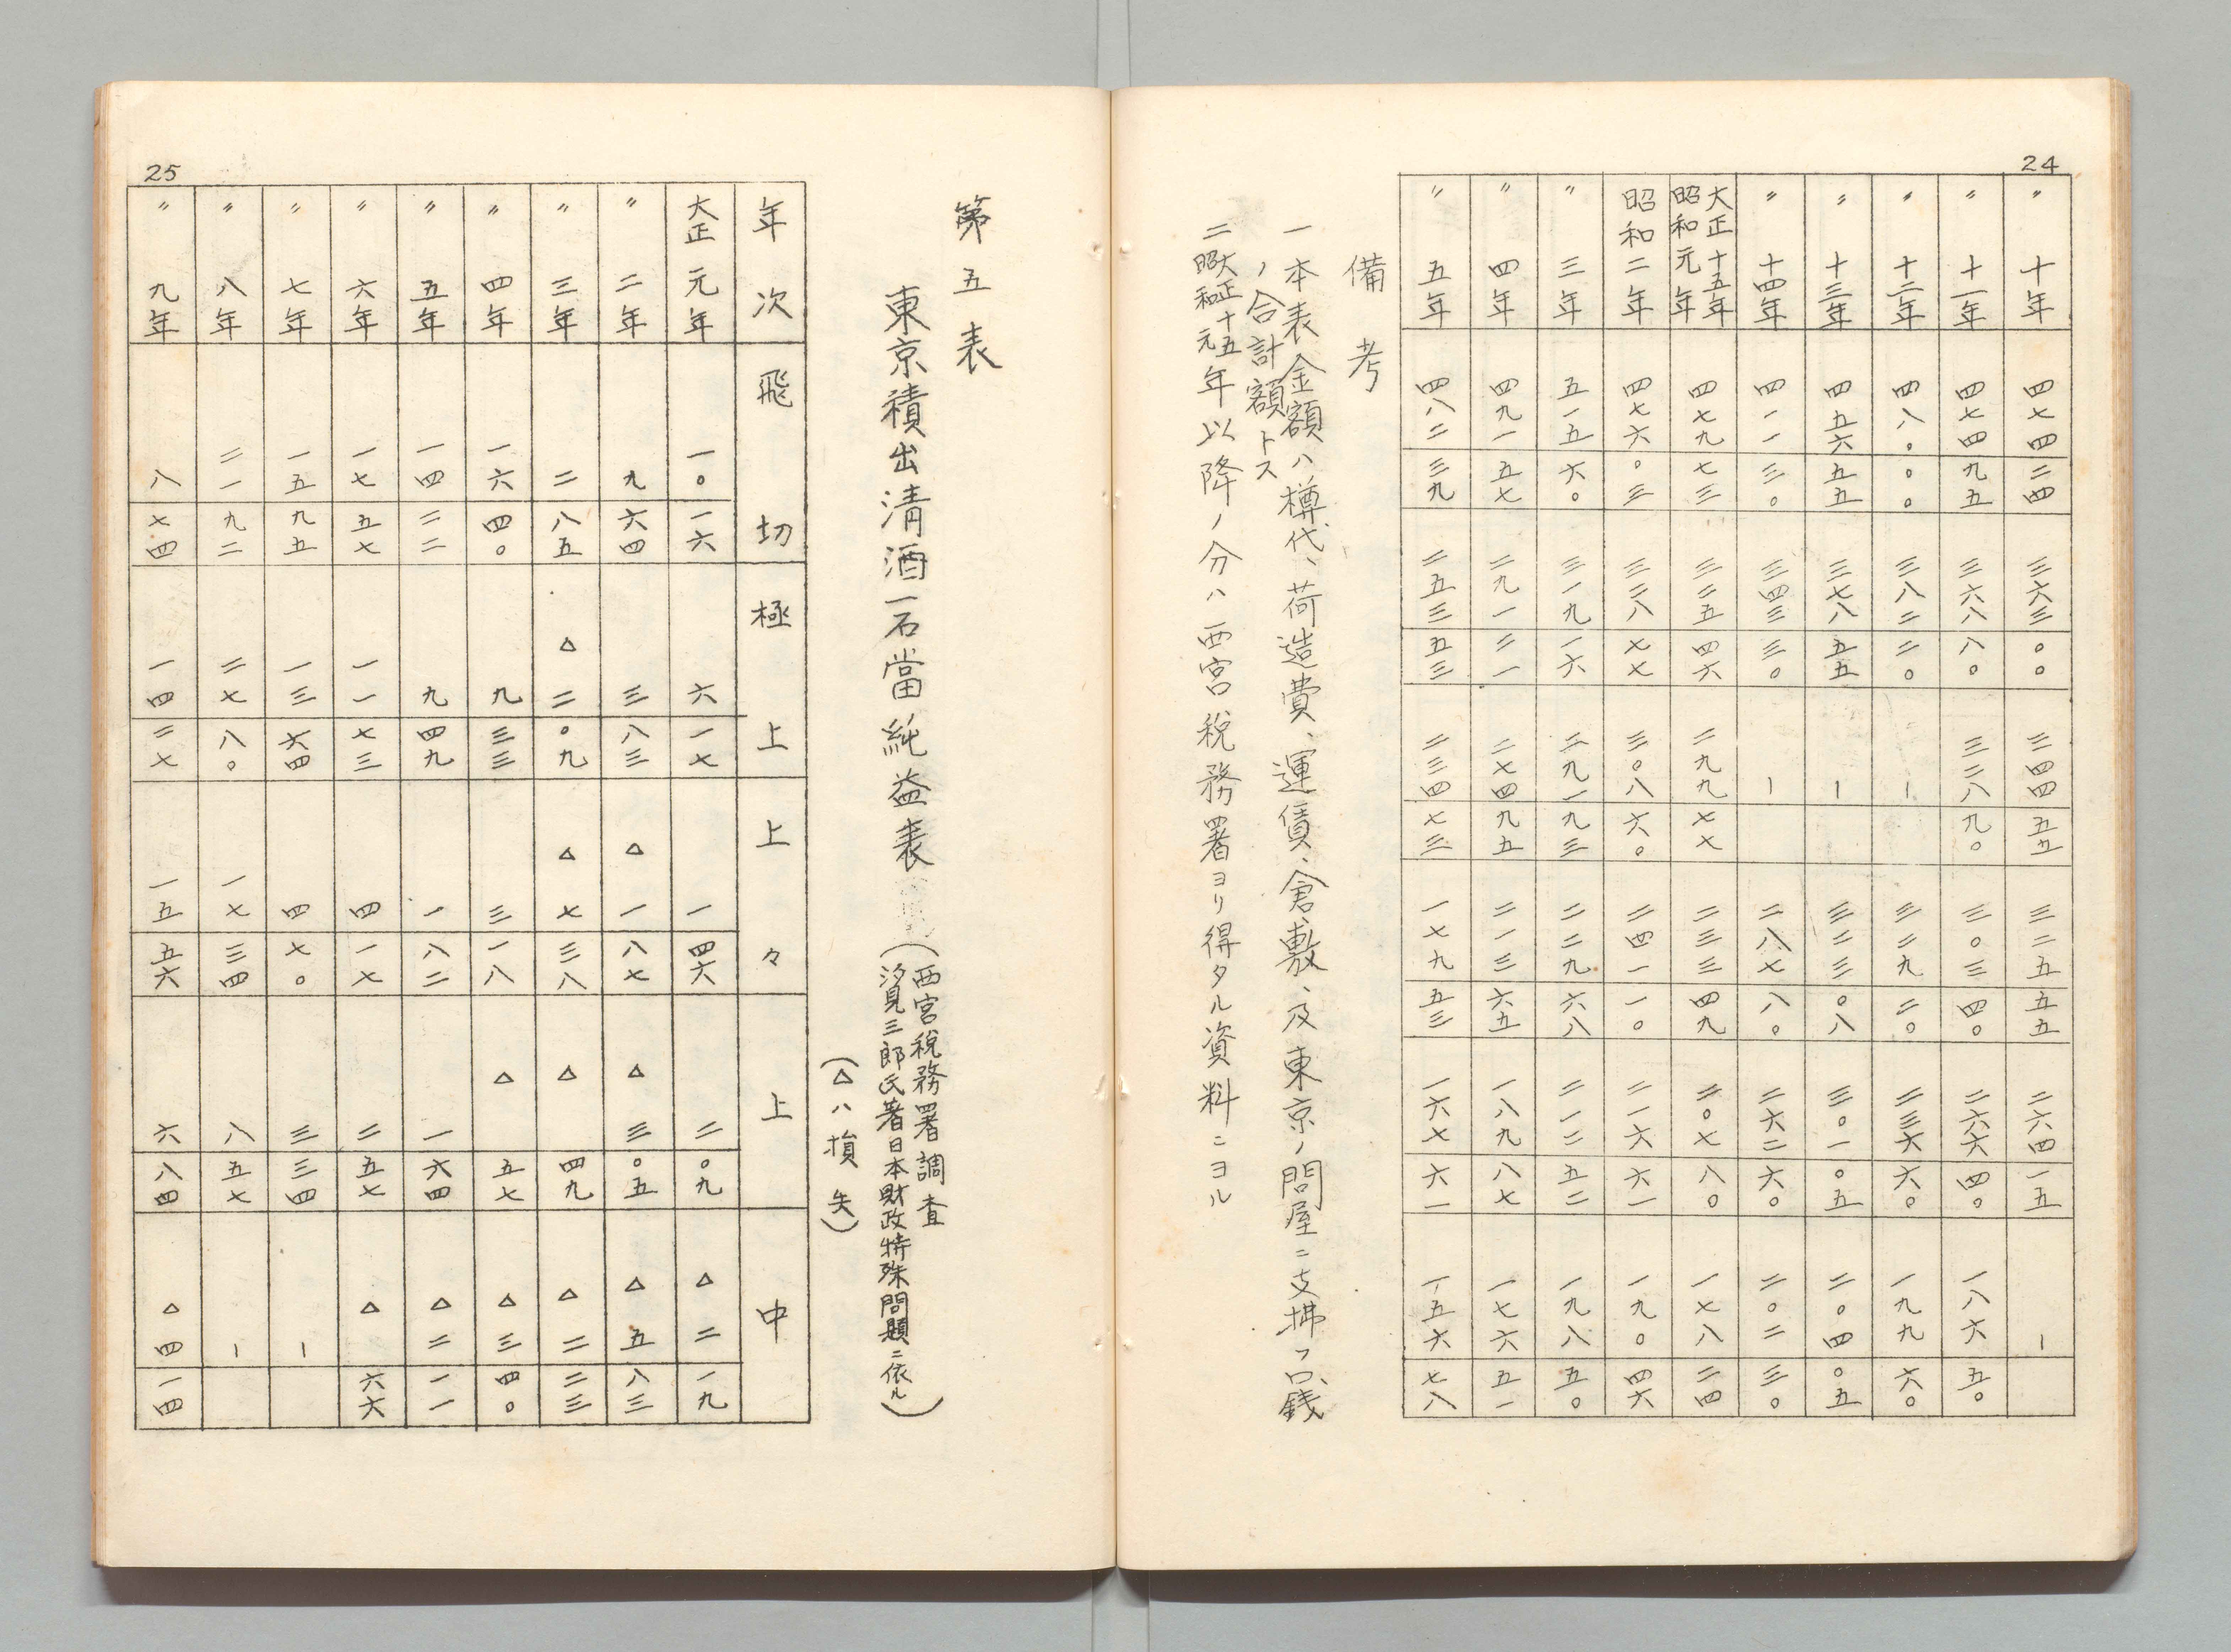 24
〃 十年 四七四 二四 三六三 〇〇 三四四 五五 三二五 五五 二六四 一五 ー
〃 十一年 四七四 九五 三六八 八〇 三二八 九〇 三〇三 四〇 二六六 四〇 一八六 五〇
〃 十二年 四八〇 〇〇 三八二 二〇 ー 三二九 二〇 二三六 六〇 一九九 六〇
〃 十三年 四五六 五五 三七八 五五 ー 三二三 〇八 三〇一 〇五 二〇四 〇五
〃 十四年 四一一 三〇 三四三 三〇 ー 二八七 八〇 二六二 六〇 二〇二 三〇
大正十五年 昭和元年 四七九 七三 三二五 四六 二九九 七七 二三三 四九 二〇七 八〇 一七八 二四
昭和二年 四七六 〇三 三三八 七七 三〇八 六〇 二四一 一〇 二一六 六一 一九〇 四六
〃 三年 五一五 六〇 三一九 一六 二九一 九三 二二九 六八 二一二 五二 一九八 五〇
〃 四年 四九一 五七 二九一 二一 二七四 九五 二一三 六五 一八九 八七 一七六 五一
〃 五年 四八二 三九 二五三 五三 二三四 七三 一七九 五三 一六七 六一 一五六 七八
備考
一 本表金額ハ樽代、荷造費、運賃、倉敷、及東京ノ問屋ニ支拂フ口銭
ノ合計額トス
二 大正十五 昭和元年以降ノ分ハ西宮税務署ヨリ得タル資料ニヨル
第五表
東京積出清酒一石當純益表
(西宮税務署調査
汐見三郎氏著日本財政特殊問題ニ依ル)
(△ハ損失)
25
年次 飛切 極上 上々 上 中
大正元年 一〇 一六 六 一七 一 四六 二 〇九 △二 一九
〃 二年 九 六四 三 八三 △一 八七 △三 〇五 △五 八三
〃 三年 二 八五 △二 〇九 △七 三八 △ 四九 △二 二三
〃 四年 一六 四〇 九 三三 三 一八 △ 五七 △三 四〇
〃 五年 一四 二二 九 四九 一 八二 一 六四 △二 一一
〃 六年 一七 五七 一一 七三 四 一七 二 五七 △ 六六
〃 七年 一五 九五 一三 六四 四 七〇 三 三四 ー
〃 八年 二一 九二 二七 八〇 一七 三四 八 五七 ー
〃 九年 八 七四 一四 二七 一五 五六 六 八四 △四 一四